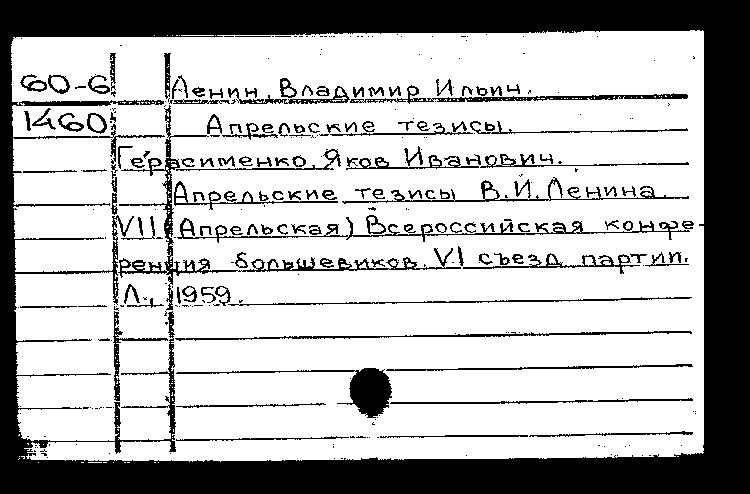 60-6 Ленин, Владимир Ильич.
1460 Апрельские тезисы.
Герасименко, Яков Иванович.
Апрельские тезисы В.И. Ленина.
VII (Апрельская) Всероссийская конфе-
ренция большевиков. VI съезд партии.
Л., 1959.